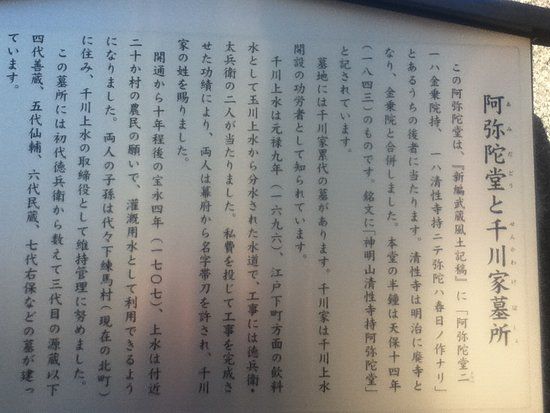 阿弥陀堂と千川家墓所
あみだどう せんかわけぼしょ
この阿弥陀堂は、『新編武蔵風土記稿』に「阿弥陀堂二
一ハ金乗院持、一ハ清性寺持ニテ弥陀ハ春日ノ作ナリ」
とあるうちの後者に当たります。清性寺は明治に廃寺と
なり、金乗院と合併しました。本堂の半鐘は天保十四年
(一八四三)のものです。銘文に「神明山清性寺持阿弥陀堂」
と記されています。
墓地には千川家累代の墓があります。千川家は千川上水
開設の功労者として知られています。
千川上水は元禄九年(一六九六)、江戸下町方面の飲料
水として玉川上水から分水された水道で、工事には徳兵衛・
太兵衛の二人が当たりました。私費を投じて工事を完成さ
せた功績により、両人は幕府から名字帯刀を許され、千川
家の姓を賜りました。
開通から十年程後の宝永四年(一七〇七)、上水は付近
二十か村の農民の願いで、灌漑用水として利用できるよう
になりました。両人の子孫は代々下練馬村(現在の北町)
に住み、千川上水の取締役として維持管理に努めました。
この墓所には初代徳兵衛から数えて三代目の源蔵以下
四代善蔵、五代仙輔、六代民蔵、七代右保などの墓が建っ
ています。